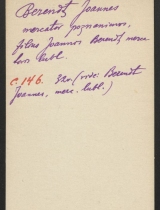 Berendt Joannes
mercator poznanienses,
filius Joannis Berendt merca
toris lubl.
c. 146. 32v (vide: Berendt
Joannes, merc. lubl.)